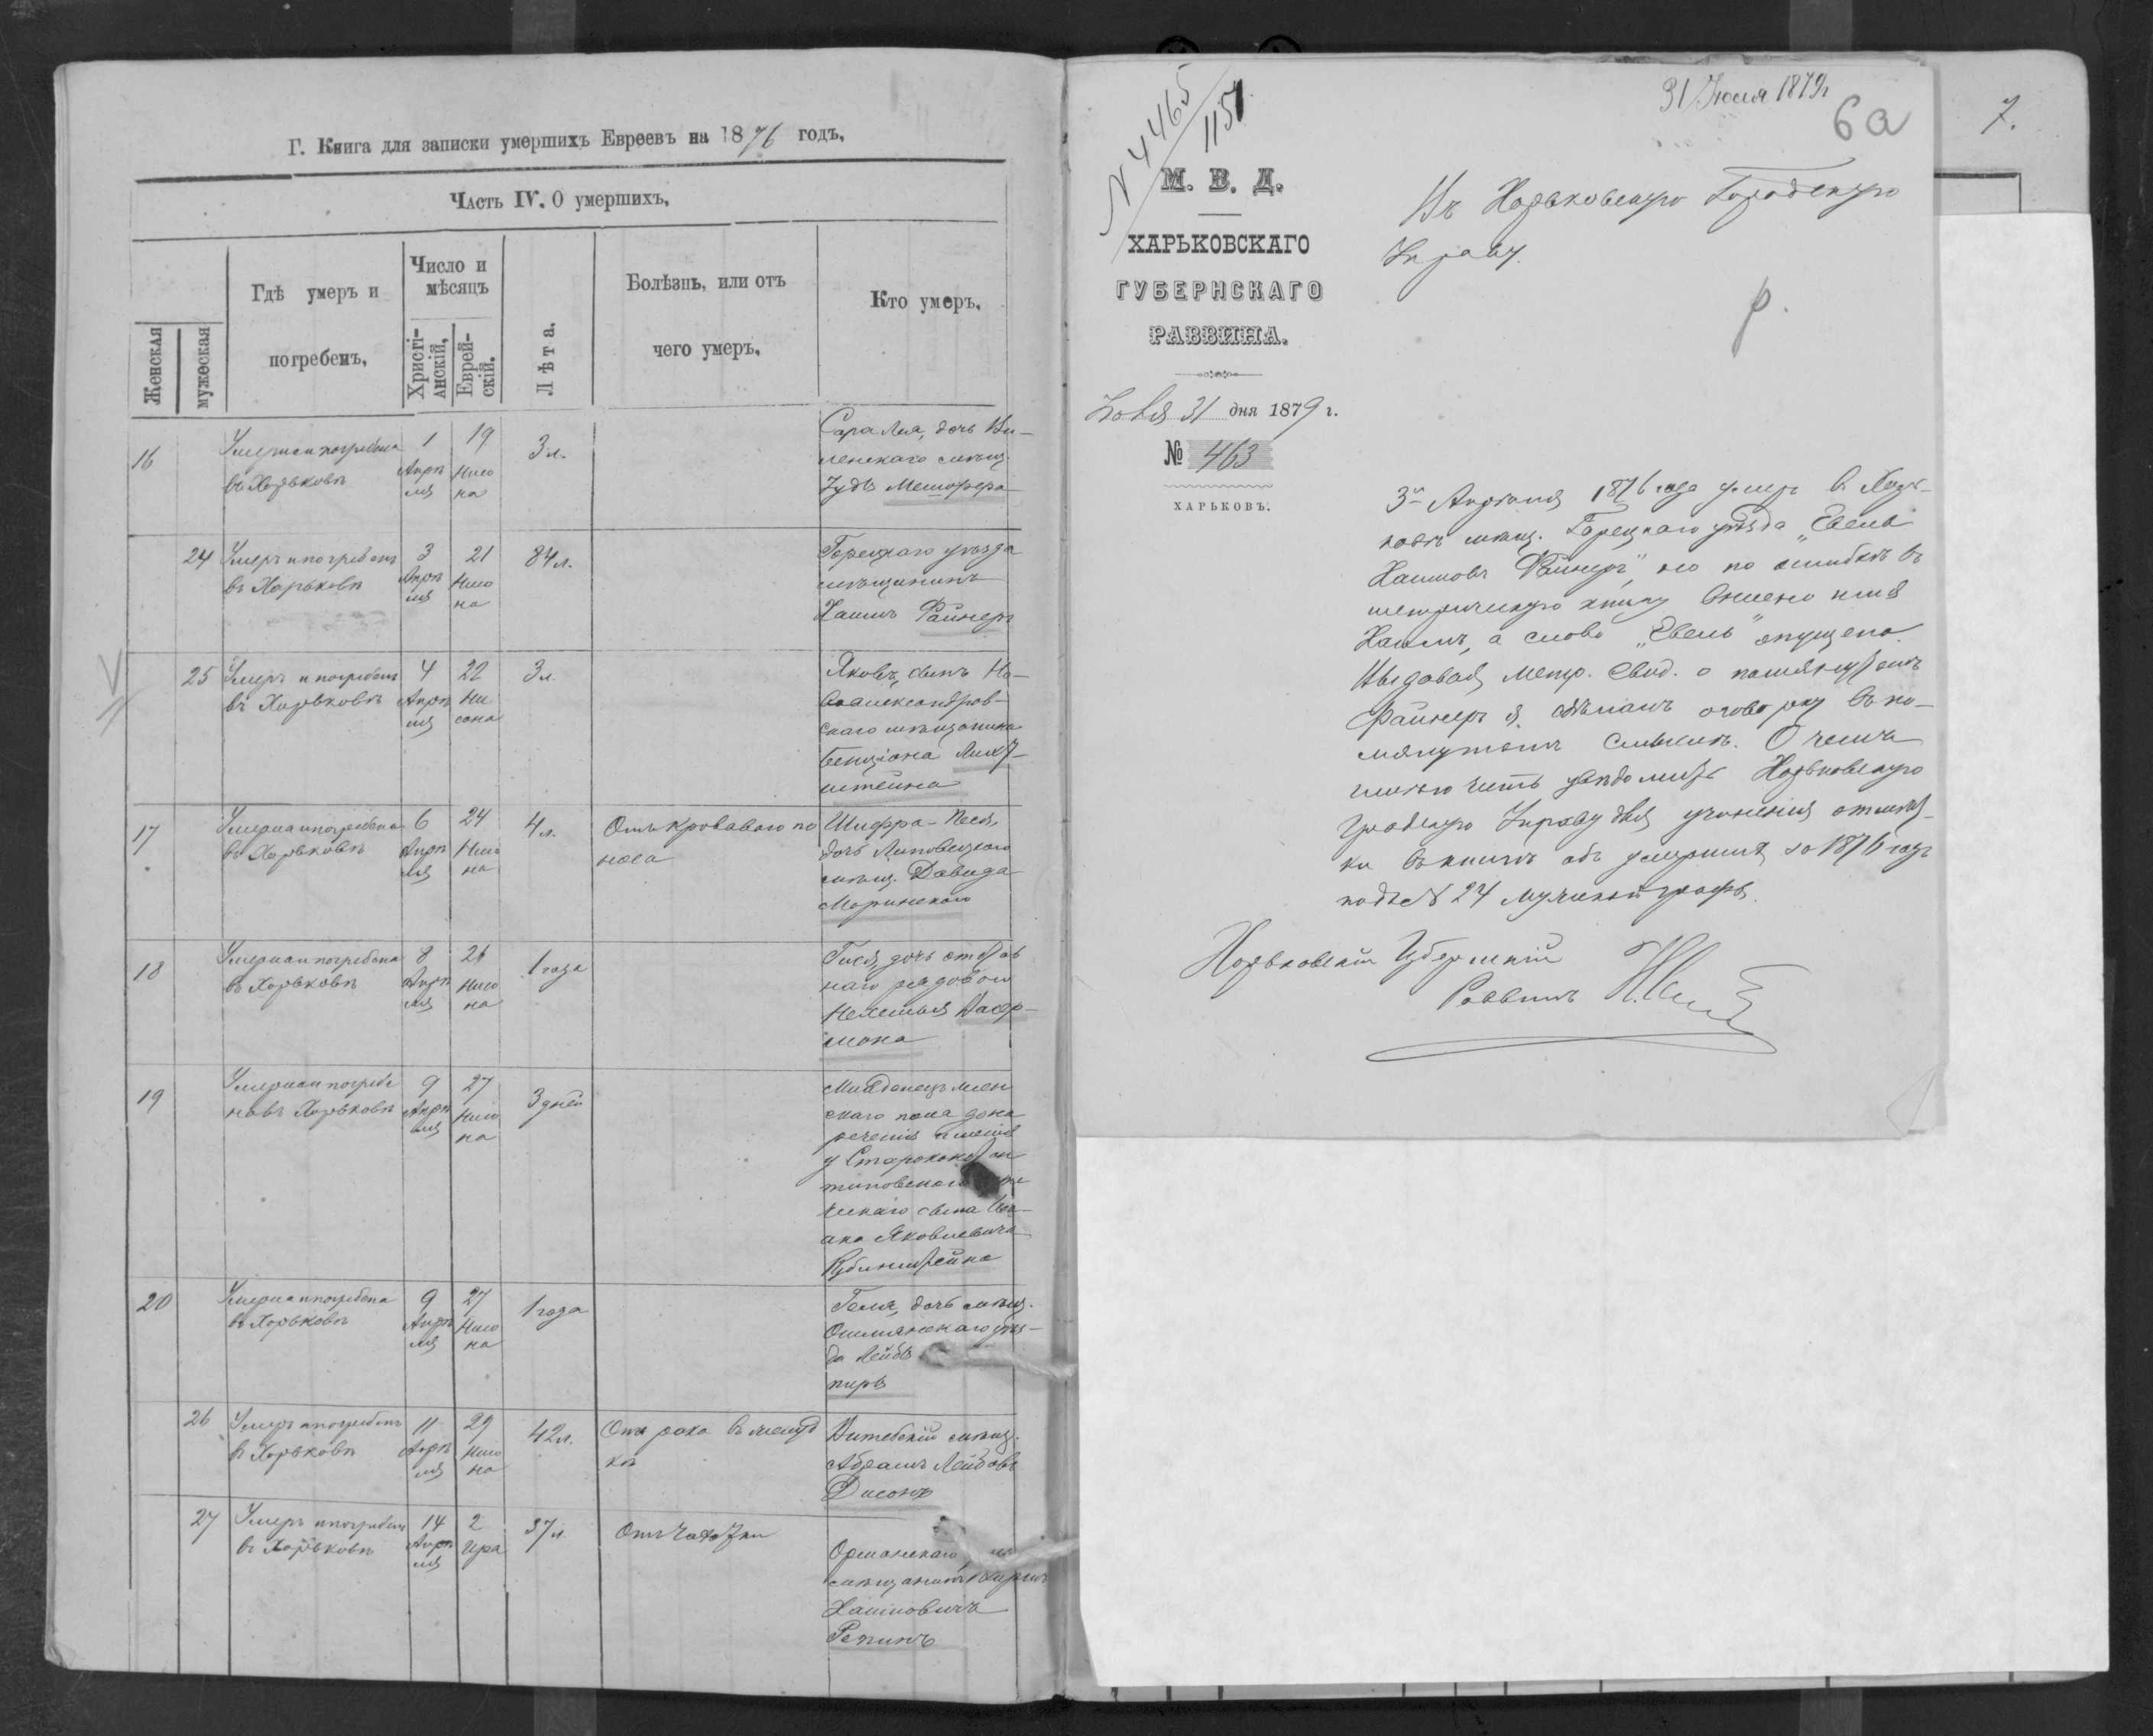 Г. Книга для записки умершихъ Евреевъ на 1876 годъ.
Часть IV. О умершихъ.
Женская
мужеская
Гдѣ умеръ и
погребенъ.
Число и
мѣсяцъ
Христі-
анскій.
Еврей-
скій.
Лѣта.
Болѣзнь, или отъ
чего умеръ.
Кто умеръ.
16
Умерла и погребена
въ Харьковѣ
1
Апрѣ
ля
19
Нисо
на
3 л.
Сара Лея, дочь Ви-
ленскаго мѣщ.
Іуды Мешорера
24
Умеръ и погребенъ
въ Харьковѣ
3
Апрѣ
ля
21
Нисо
на
84 л.
Горецкаго уѣзда
мѣщанинъ
Хаимъ Файнеръ
25
Умеръ и погребенъ
въ Харьковѣ
4
Апрѣ
ля
22
Ни
сона
3 л.
Яковъ, сынъ Но-
воалександров-
скаго мѣщанина
Бенціона Лихт-
штейна
17
Умерла и погребена
въ Харьковѣ
6
Апрѣ
ля
24
Нисо
на
4 л.
Отъ кроваваго по
носа
Шифра-Песя,
дочь Липовецкаго
мѣщ. Давида
Моринскаго
18
Умерла и погребена
въ Харьковѣ
8
Апрѣ
ля
26
Нисо
на
1 года
Гися, дочь отстав
наго рядоваго
19
Умерла и погребе
на въ Харьковѣ
9
Апрѣ
ля
27
Нисо
на
3 дней
Младенецъ жен
скаго пола до на
реченія имени
у Староконстан
тиновскаго
ческаго сына Иса-
ака Яковлевича
Рубинштейна
20
Умерла и погребена
въ Харьковѣ
9
Апрѣ
ля
27
Нисо
на
1 года
Геля, дочь мѣщ.
Ошмянскаго уѣз-
да Лейбы
пиръ
26
Умеръ и погребенъ
въ Харьковѣ
11
Апрѣ
ля
29
Нисо
на
42 л.
Отъ рака въ желуд
кѣ
Витебскій мѣщ.
Абрамъ Лейбовъ
Дисонъ
27
Умеръ и погребенъ
въ Харьковѣ
14
Апрѣ
ля
2
Іира
37 л.
Отъ чахотки
Оршанскаго
мѣщанинъ
Хаимовичъ
Репинъ
31 Іюля 1879 г
6а
7.
N 4465
1151
М. В. Д.
ХАРЬКОВСКАГО
ГУБЕРНСКАГО
РАВВИНА.
Іюля 31 дня 1879 г.
№ 463
ХАРЬКОВЪ.
Въ Харьковскую Городскую
Управу.
3го Апрѣля 1876 года умеръ въ Харь-
ковѣ мѣщ. Горецкаго уѣзда „Евель
Хаимовъ Файнеръ", но по ошибкѣ въ
метрическую книгу внесено имя
Хаимъ, а слово „Евель" опущено.
Выдавая метр. свид. о помянутомъ
Файнеръ я сдѣлалъ оговорку въ по-
мянутомъ смыслѣ. О чемъ
имѣю честь увѣдомить Харьковскую
Городскую Управу для учиненія отмѣт-
ки въ книгѣ объ умершихъ за 1876 годъ
подъ № 24 мужской графы.
Харьковскій Губернскій
Раввинъ